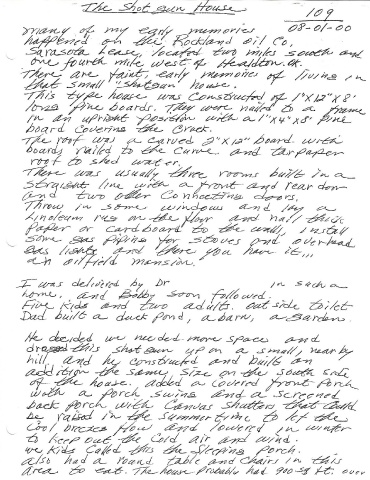 The Shotgun House
109
08-01-00
Many of my early memories
happened on the Rockland Oil Co.
Sarasota Lease, located two miles south and
one fourth mile west of Healdton, OK.
There are faint, early memories of living in
that small shotgun house.
This type house was constructed of 1"X12"X8'
long pine boards. They were nailed to a frame
in an upright position with a 1"X4"X8' pine
board covering the crack.
The roof was a carved 2"X12" board with
boards nailed to the curve and tarpaper
roof to shed water.
There was usually three rooms built in a
straight line with a front and rear door
and two other connecting doors.
Throw in some windows and lay a
linoleum rug on the floor and nail thick
paper or cardboard to the walls, install
some gas piping for stoves and overhead
gas lights and there you have it...
an oilfield mansion.
I was delivered by Dr in such a
home, and Bobby soon followed.
Five kids and two adults. outside toilet
Dad built a duck pond, a barn, a garden
He decided we needed more space and
this shotgun up on a small, nearby
hill, and he constructed and built an
addition the same size on the south side
of the house. added a covered front porch
with a porch swing and a screened
back porch with canvas shutters that could
be raised in the summertime to let the
cool breezes flow and lowered in winter
to keep out the cold air and wind.
we kids called this the sleeping porch.
also had a round table and chairs in this
area to eat. The house probably had 900 sq ft. over